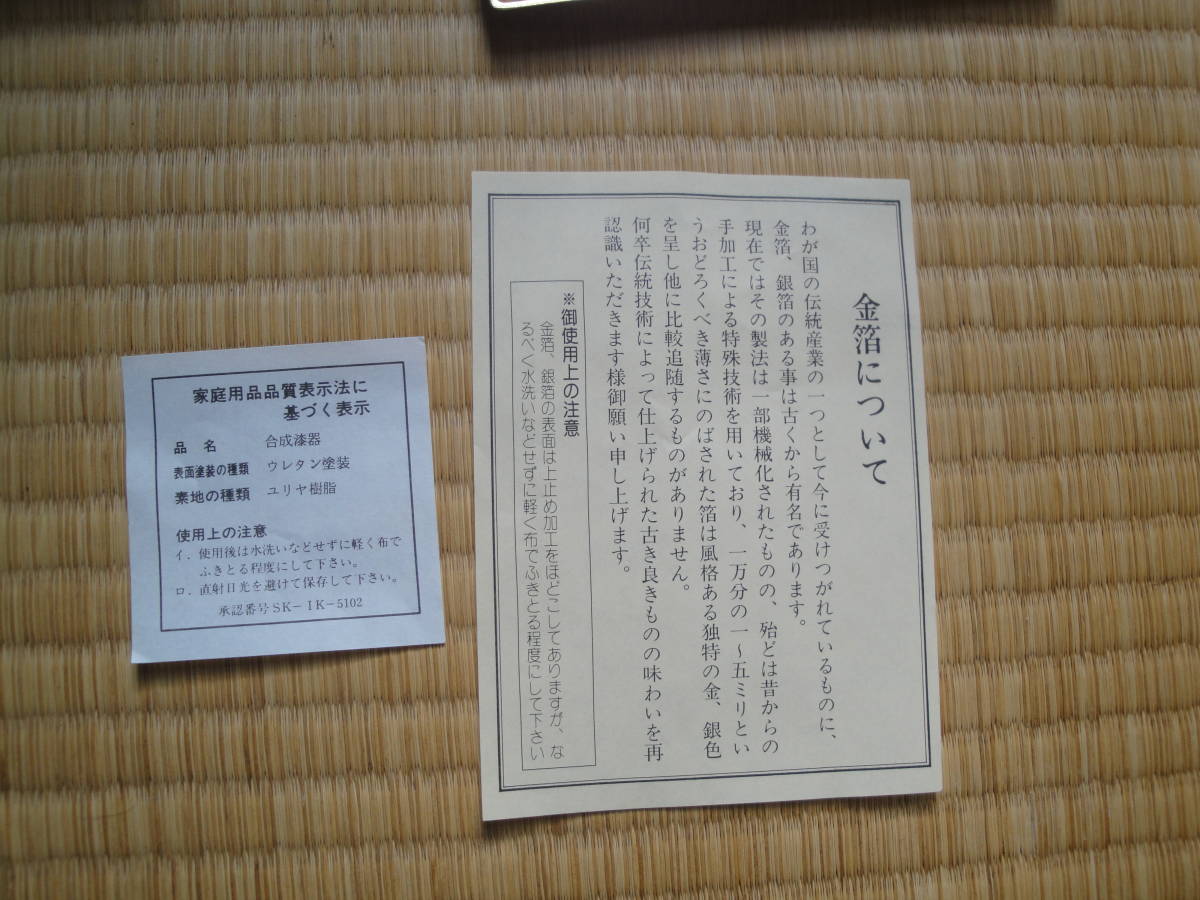 家庭用品品質表示法に
基づく表示
品名 合成漆器
表面塗装の種類 ウレタン塗装
素地の種類 ユリヤ樹脂
使用上の注意
イ．使用後は水洗いなどせずに軽く布で
ふきとる程度にして下さい。
ロ．直射日光を避けて保存して下さい。
承認番号SK－IK－5102
金箔について
わが国の伝統産業の一つとして今に受けつがれているものに、
金箔、銀箔のある事は古くから有名であります。
現在ではその製法は一部機械化されたものの、殆どは昔からの
手加工による特殊技術を用いており、一万分の一～五ミリとい
うおどろくべき薄さにのばされた箔は風格ある独特の金、銀色
を呈し他に比較追随するものがありません。
何卒伝統技術によって仕上げられた古き良きものの味わいを再
認識いただきます様御願い申し上げます。
※御使用上の注意
金箔、銀箔の表面は上止め加工をほどこしてありますが、な
るべく水洗いなどせずに軽く布でふきとる程度にして下さい